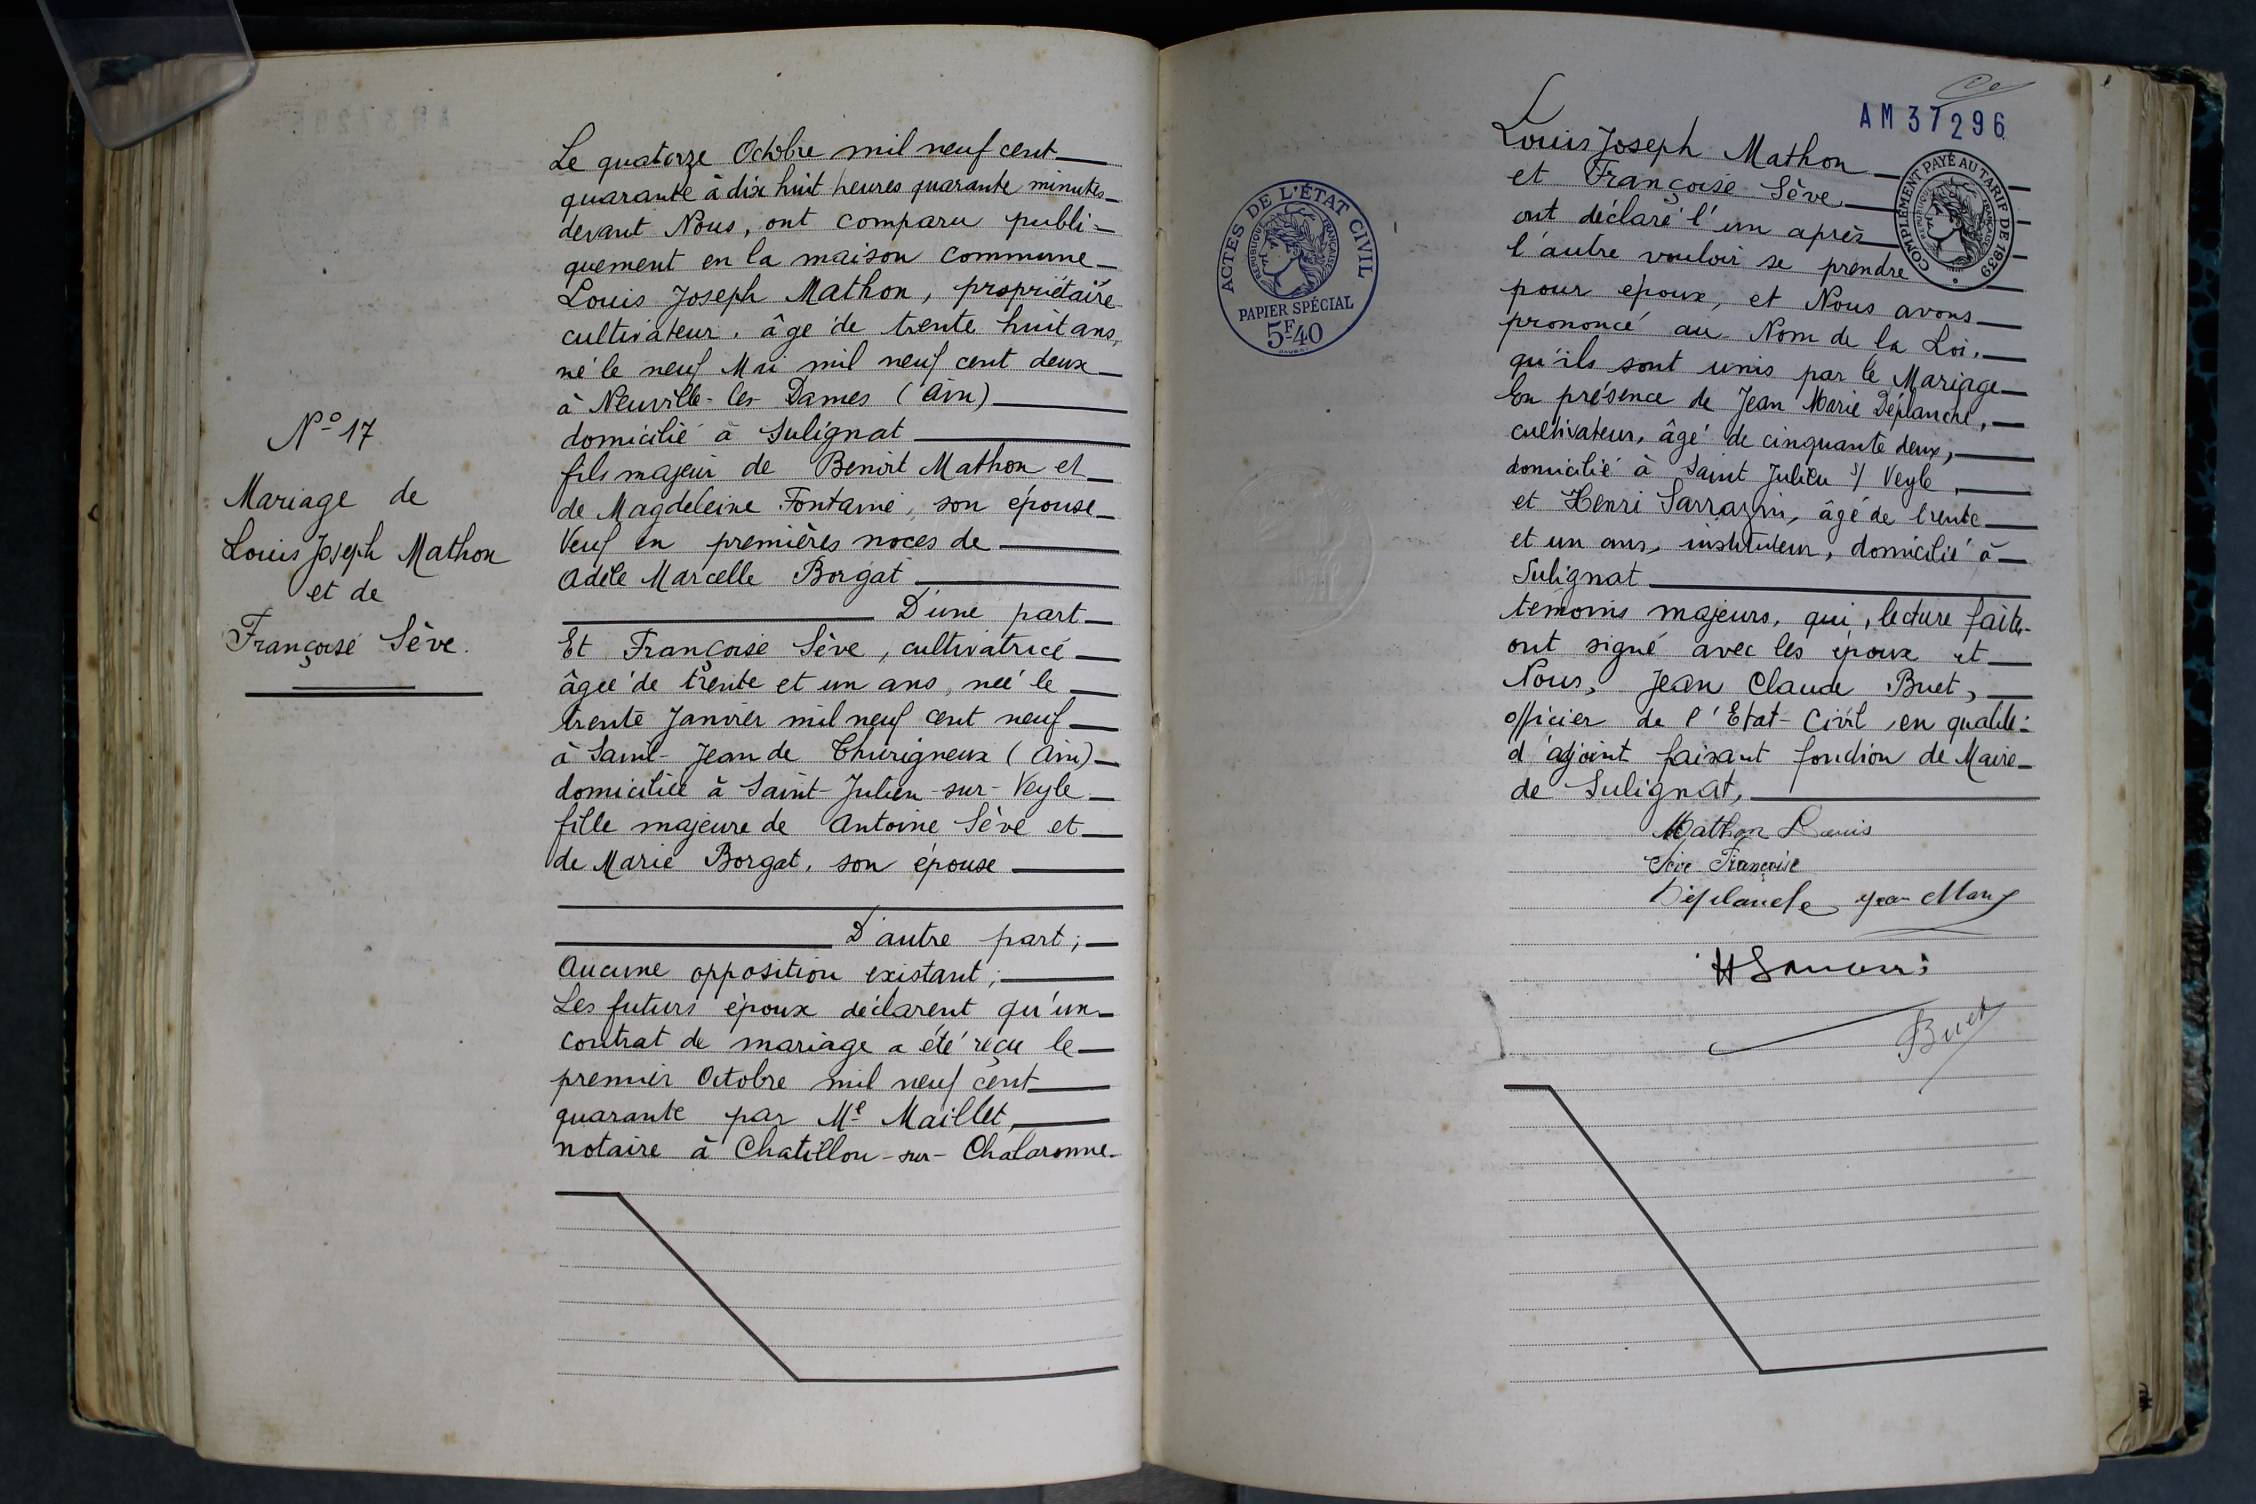 N° 17
Mariage de
Louis Joseph Mathon
et de
Françoise Sève.
Le quatorze Octobre mil neuf cent
quarante à dix huit heures quarante minutes
devant Nous, ont comparu publi-
quement en la maison commune
Louis Joseph Mathon, propriétaire
cultivateur, âgé de trente huit ans,
né le neuf Mai mil neuf cent deux
à Neuville-les Dames (Ain)
domicilié à Sulignat
fils majeur de Benoit Mathon et
de Magdeleine Fontaine, son épouse
Veuf en premières noces de
Adèle Marcelle Borgat
D'une part
Et Françoise Sève, cultivatrice
âgée de trente et un ans, née le
trente Janvier mil neuf cent neuf
à Saint-Jean de Thurigneux (Ain)
domiciliée à Saint-Julien-sur-Veyle
fille majeure de Antoine Sève et
de Marie Borgat, son épouse
D'autre part;
Aucune opposition existant;
Les futurs époux déclarent qu'un
contrat de mariage a été reçu le
premier Octobre mil neuf cent
quarante par Me Maillet,
notaire à Chatillon-sur-Chalaronne.
ACTES DE L'ÉTAT CIVIL
RÉPUBLIQUE FRANÇAISE
PAPIER SPÉCIAL
5F40
AM 37296
COMPLÉMENT PAYÉ AU TARIF DE 1939
RÉPUBLIQUE FRANÇAISE
Louis Joseph Mathon
et Françoise Sève
ont déclaré l'un après
l'autre vouloir se prendre
pour époux, et Nous avons
prononcé au Nom de la Loi,
qu'ils sont unis par le Mariage
En présence de Jean Marie Déplanche,
cultivateur, âgé de cinquante deux,
domicilié à Saint Julien s/ Veyle,
et Henri Sarrazin, âgé de trente
et un ans, instituteur, domicilié à
Sulignat
témoins majeurs, qui, lecture faite,
ont signé avec les époux et
Nous, Jean Claude Buet,
officier de l'Etat-Civil, en qualité
d'adjoint faisant fonction de Maire
de Sulignat,
Mathon Louis
Sève Françoise
Déplanche Jean Mary
Buet